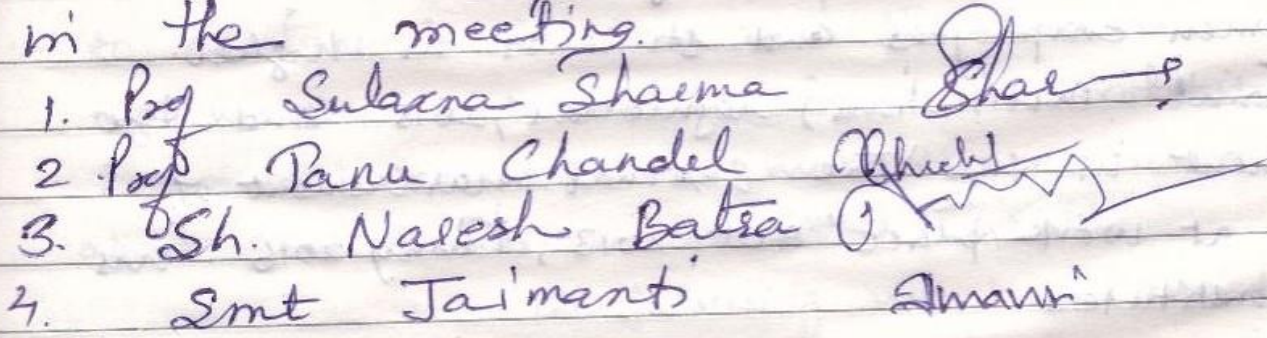 in the meeting.
1. Prof Sulaxna Sharma
2 Prof Tanu Chandel
3. Sh. Naresh Batra
4. Smt Jaimanti